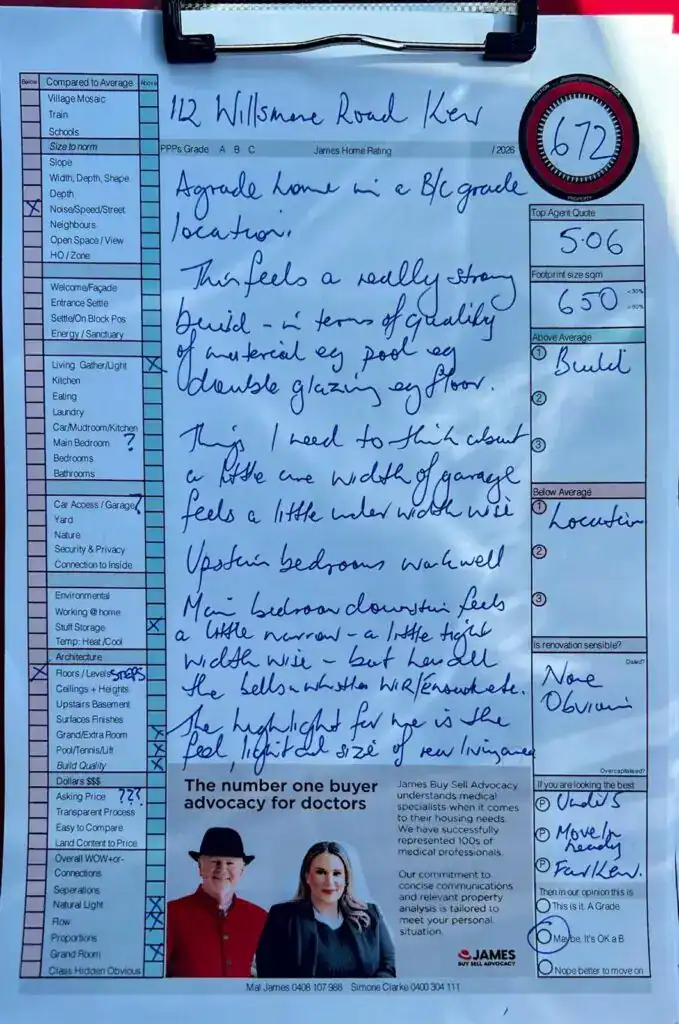 Below
Compared to Average
Above
Village Mosaic
Train
Schools
Size to norm
Slope
Width, Depth, Shape
Depth
X Noise/Speed/Street
Neighbours
Open Space / View
HO / Zone
Welcome/Façade
Entrance Settle
Settle/On Block Pos
Energy / Sanctuary
Living Gather/Light X
Kitchen
Eating
Laundry
Car/Mudroom/Kitchen
Main Bedroom ?
Bedrooms
Bathrooms
Car Access / Garage ?
Yard
Nature
Security & Privacy
Connection to Inside
Environmental
Working @ home
Stuff Storage X
Temp: Heat /Cool
Architecture
X Floors / Levels STEPS
Ceilings + Heights
Upstairs Basement
Surfaces Finishes
Grand/Extra Room X
Pool/Tennis/Lift X
Build Quality X
Dollars $$$
Asking Price ???
Transparent Process
Easy to Compare
Land Content to Price
Overall WOW+or-
Connections
Seperations
Natural Light X
Flow X
Proportions
Grand Room X
Class Hidden Obvious
112 Willsmere Road Kew
PPPs Grade A B C James Home Rating / 2026
A grade home in a B/C grade
location.
This feels a really strong
build - in terms of quality
of material eg pool eg
double glazing eg floor.
Things I need to think about
a little are width of garage
feels a little under width wise
Upstairs bedrooms work well
Main bedroom downstairs feels
a little narrow - a little tight
width wise - but has all
the bells n whistles WIR/Ensuite etc.
The highlight for me is the
feel, light and size of rear living area
The number one buyer
advocacy for doctors
James Buy Sell Advocacy
understands medical
specialists when it comes
to their housing needs.
We have successfully
represented 100s of
medical professionals.
Our commitment to
concise communications
and relevant property
analysis is tailored to
meet your personal
situation.
JAMES
BUY SELL ADVOCACY
Mal James 0408 107 988 Simone Clarke 0400 304 111
POSITION
PRICE
672
PROPERTY
Top Agent Quote
5.06
Footprint size sqm
650
Above Average
1 Build
2
3
Below Average
1 Location
2
3
Is renovation sensible?
Dated?
None
Obvious
Overcapitalised?
If you are looking the best
P Under 5
P Move In
ready
P Far Kew.
Then in our opinion this is
This is it. A Grade
Maybe. It's OK a B
Nope better to move on